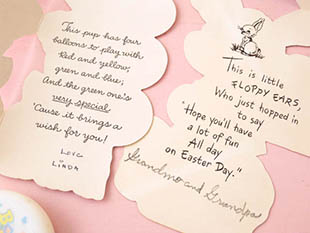 This pup has four
balloons to play with
Red and yellow,
green and blue;
And the green one's
very special
'Cause it brings a
wish for you!
Love
Linda
This is little
FLOPPY EARS,
Who just hopped in
to say
"Hope you'll have
a lot of fun
All day
on Easter Day."
Grandma and Grandpa